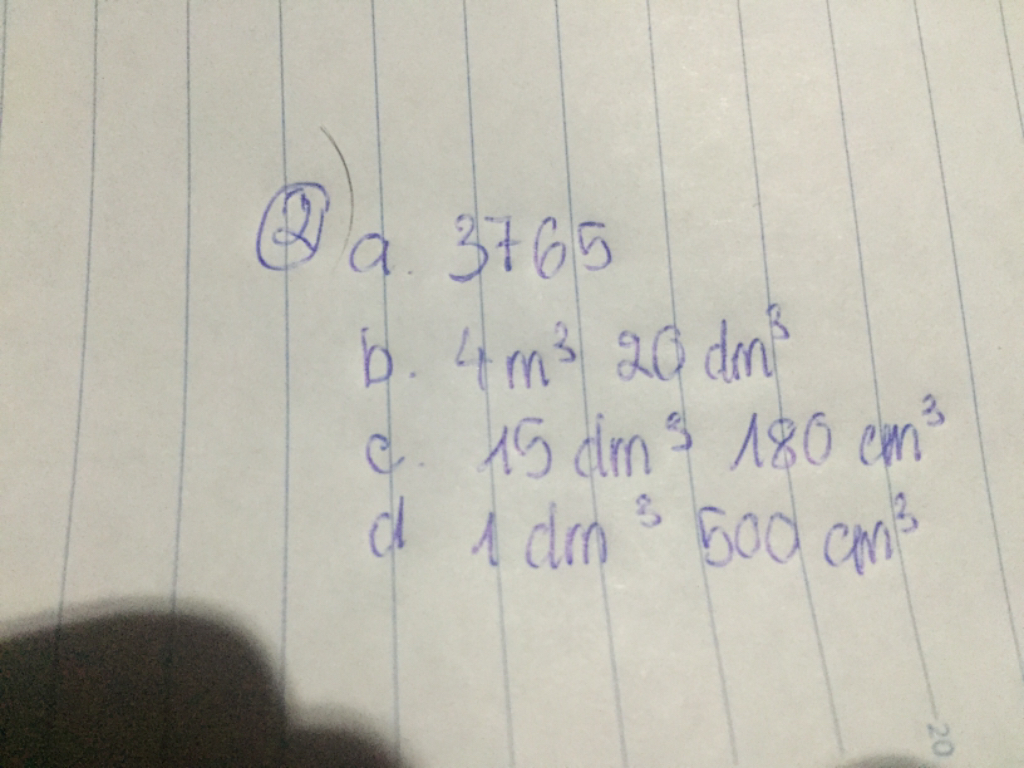 2 a. 3765
b. 4 m³ 20 dm³
c. 15 dm³ 180 cm³
d 1 dm³ 500 cm³
20